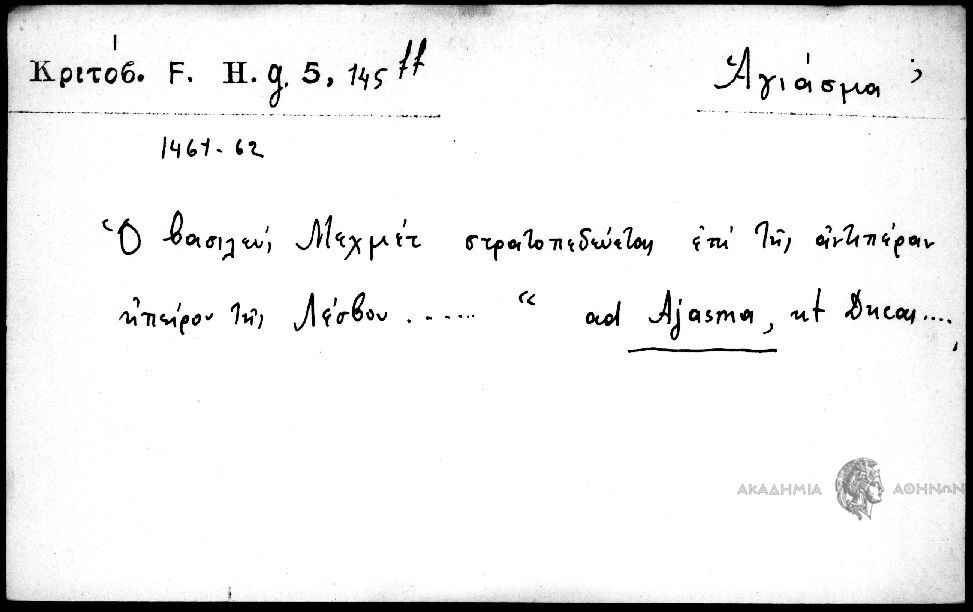 Κριτόβ. F. H. g. 5, 145 ff
Ἁγιάσμα ;
1461-62
Ὁ βασιλεύς Μεχμέτ στρατοπεδεύεται ἐπί τῆς ἀντιπέραν
ἠπείρου τῆς Λέσβου ...... " ad Ajasma, ut Ducas....
ΑΚΑΔΗΜΙΑ ΑΘΗΝΩΝ